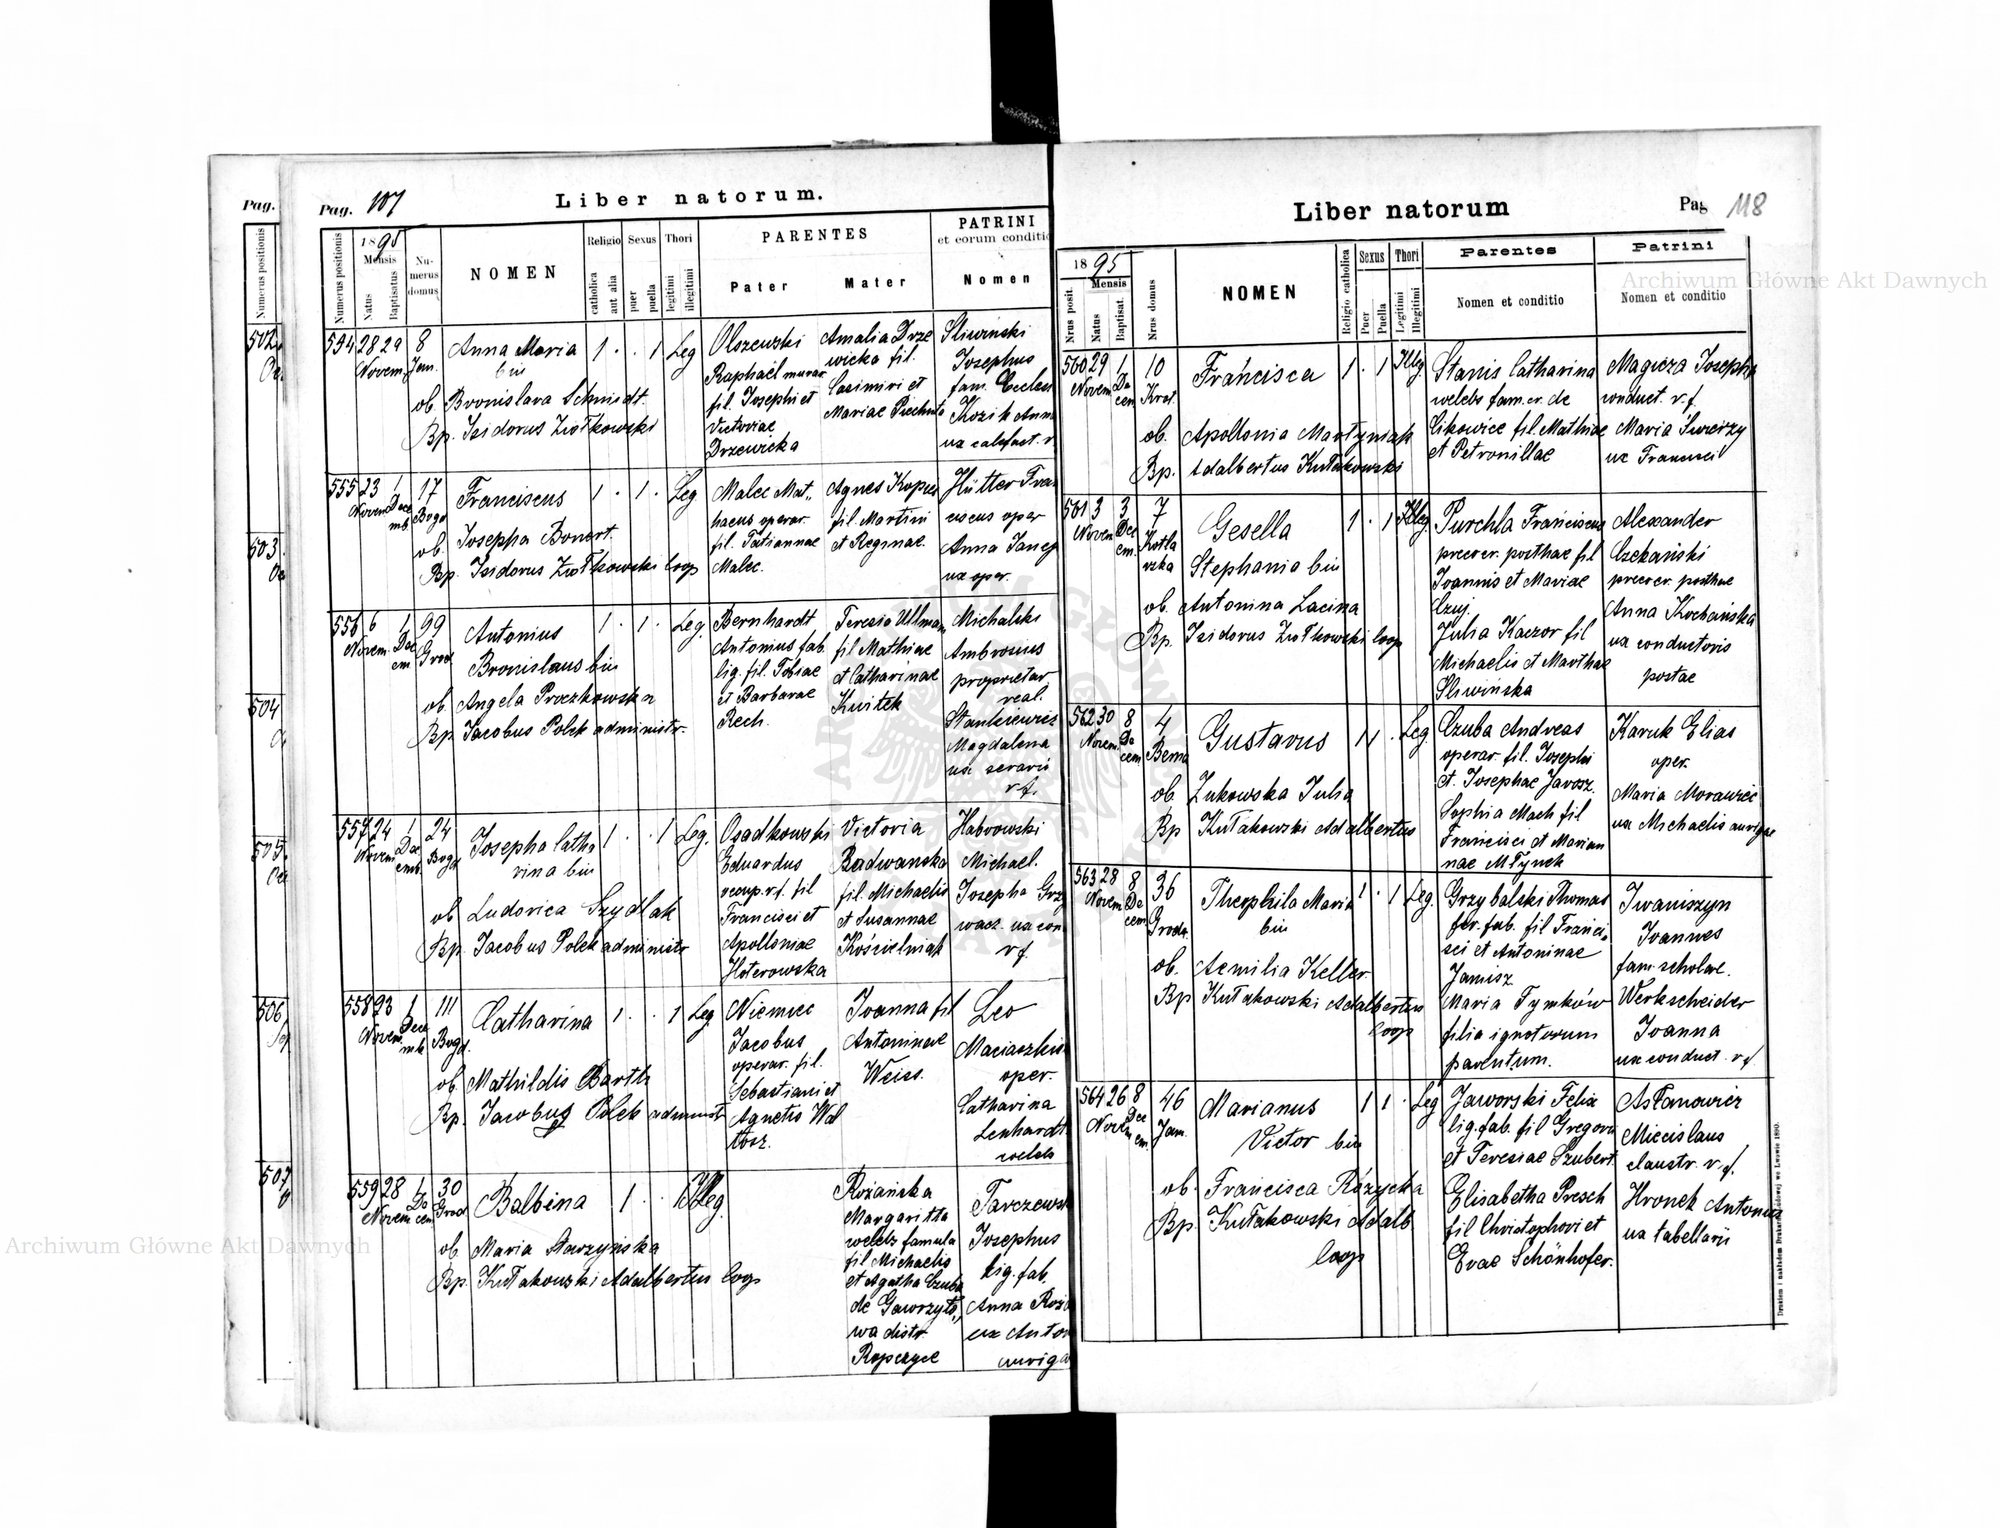 Pag.
Numerus positionis
502
503
504
505
506
507
Pag. 107
Liber natorum.
Numerus positionis
1895
Mensis
Natus
Baptisatus
Numerus domus
NOMEN
Religio
catholica
aut alia
Sexus
puer
puella
Thori
legitimi
illegitimi
PARENTES
Pater
Mater
PATRINI
et eorum conditio
Nomen
594 28 29 8 Anna Maria 1 . . 1 Leg Olszewski Amalia Drze Sliwiński
Novem. Jan. bin Raphaël murar wicka fil. Josephus
ob. Bronislava Schmidt. fil. Josephi et Casimiri et fam.
Bp. Isidorus Ziołkowski Victoriae Mariae Kozik Anna
Drzewicka
555 23 1 17 Franciscus 1 . 1 . Leg Malec Mat„ Agnes Hütter Fran
Novem Dece mb Bogd haeus operar. fil. Martini ciscus oper
ob. Josepha Bonert. fil. Tatiannae et Reginae. Anna
Bp. Isidorus Ziołkowski Coop Malec. ux oper.
556 6 1 99 Antonius 1 . 1 . Leg. Bernhardt Teresia Ullman Michalski
Novem. Dec em Grod Bronislaus bin Antonius fab. fil Mathiae Ambrosius
ob. Angela lig. fil. Tobiae et Catharinae proprietar
Bp Jacobus Polek administr. et Barbarae Kwitek real.
Rech. Stankiewicz
Magdalena
ux
r. f.
557 24 1 24 Josepha Catha 1 . . 1 Leg. Osadkowski Victoria Habrowski
Novem. Dec emb Bogd rina bin Eduardus Badwanska Michael.
r. f. fil fil. Michaelis Josepha Grzy
ob Ludovica Szydlak Francisci et et Susannae wacz. ux con
Bp. Jacobus Polek administr Apolloniae Kościelniak r f.
Hoterowska
558 23 1 111 Catharina 1 . . 1 Leg Niemiec Joanna fil Leo
Novem. Dece mb Bogd. Jacobus Antoninae
ob. Mathildis Barth operar. fil. Weiss. oper.
Bp. Jacobus Polek administ Sebastiani et Catharina
Agnetis Wal Lenhardt
tosz. celebs
559 28 1 30 Balbina 1 . . 1 Illeg. Rożańska Tarczewsk
Novem De cem Grod Margaritta Josephus
ob. Maria Starzyńska celebs famula lig. fab.
Bp. Kułakowski Adalbertus Coop fil Michaelis Anna
et Agatha Czuba ux Anto
de auriga
wa distr
Ropczyce
Liber natorum
Pag 118
Nrus posit.
1895
Mensis
Natus
Baptisat.
Nrus domus
NOMEN
Religio catholica
Sexus
Puer
Puella
Thori
Legitimi
Illegitimi
Parentes
Nomen et conditio
Patrini
Nomen et conditio
560 29 1 10 Francisca 1 . 1 Illeg Stanis Catharina Magiera Josephus
Novem. De cem Krot. celebs fam. er. de conduct. r. f.
ob. Apollonia Martyniak Cikowice fil. Mathiae Maria
Bp. Adalbertus Kułakowski et Petronillae ux Francisci
561 3 3 7 Gesella 1 . 1 Illeg. Purchla Franciscus Alexander
Novem Dec em. Kotla rska Stephania bin posthae fil Czekański
ob. Antonina Lacina Joannis et Mariae
Bp. Isidorus Ziołkowski Coop Czuj. Anna Kochańska
Julia Kaczor fil ux conductoris
Michaelis et Marthae postae
Sliwińska
562 30 8 4 Gustavus 1 1 . Leg. Czuba Andreas Karuk Elias
Novem. De cem Berna operar. fil. Josephi oper.
ob. Żukowska Julia et. Josephae Jarosz. Maria Morawiec
Bp Kułakowski Adalbertus Sophia Mach fil ux Michaelis aurigae
Francisci et Marian
nae Młynek
563 28 8 36 Theophila Maria 1 . 1 Leg. Grzybalski Thomas Iwaniszyn
Novem. De cem. Grodz. bin fer. fab. fil Franci- Joannes
ob. Aemilia Keller. sci et Antoninae fam. scholae.
Bp Kułakowski Adalbertus Janisz Werkscheider
Coop Maria Tymków Joanna
filia ignotorum ux conduct. r. f.
parentum.
564 26 8 46 Marianus 1 1 . Leg Jaworski Felix Asłanowicz
Novem Dec em. Jan. Victor bin lig. fab. fil Gregorii Miecislaus
ob. Francisca Różycka et Teresiae Szubert. claustr. r. f.
Bp. Kułakowski Adalb Elisabetha Presch Hronek Antonius
Coop fil Christophori et ux tabellarii
Evae Schönhofer.
Drukiem i nakładem Drukarni Ludowej we Lwowie 1890.
Archiwum Główne Akt Dawnych
Archiwum Główne Akt Dawnych